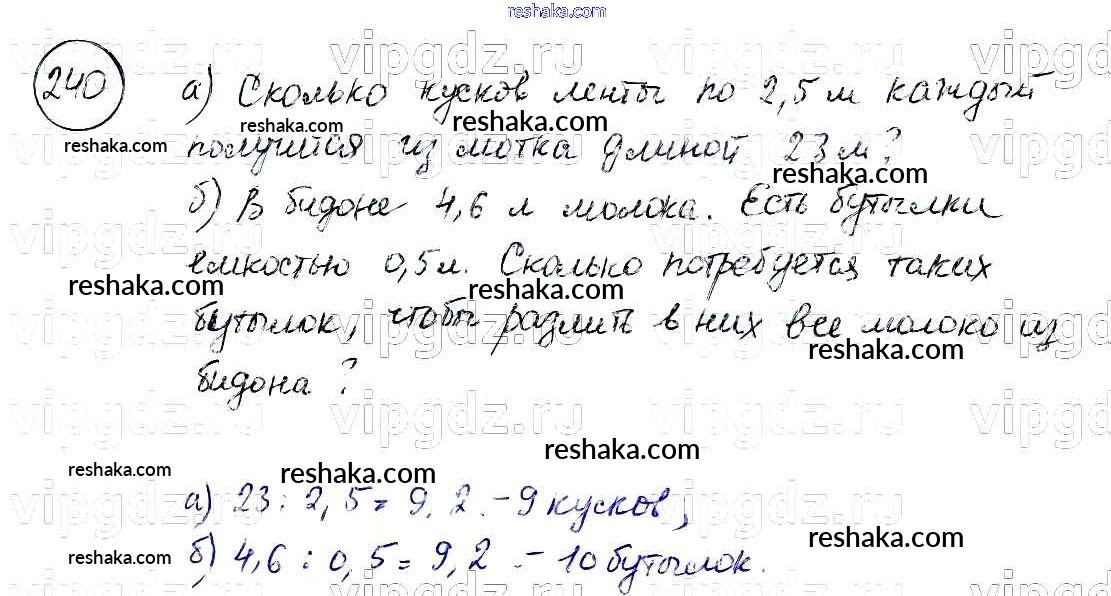 reshaka.com
vipgdz.ru vipgdz.ru vipgdz.ru vipgdz
240
а) Сколько кусков ленты по 2,5 м каждый
reshaka.com reshaka.com reshaka.com
получится из мотка длиной 23 м?
reshaka.com
б) В бидоне 4,6 л молока. Есть бутылки
vipgdz.ru vipgdz.ru vipgdz.ru vipgdz
емкостью 0,5 л. Сколько потребуется таких
reshaka.com reshaka.com
бутылок, чтобы разлить в них все молоко из
reshaka.com
бидона?
vipgdz.ru vipgdz.ru vipgdz.ru vipgdz
reshaka.com reshaka.com reshaka.com
а) 23 : 2,5 = 9,2 - 9 кусков,
vipgdz.ru vipgdz.ru vipgdz.ru vipgdz
reshaka.com reshaka.com
б) 4,6 : 0,5 = 9,2 - 10 бутылок.